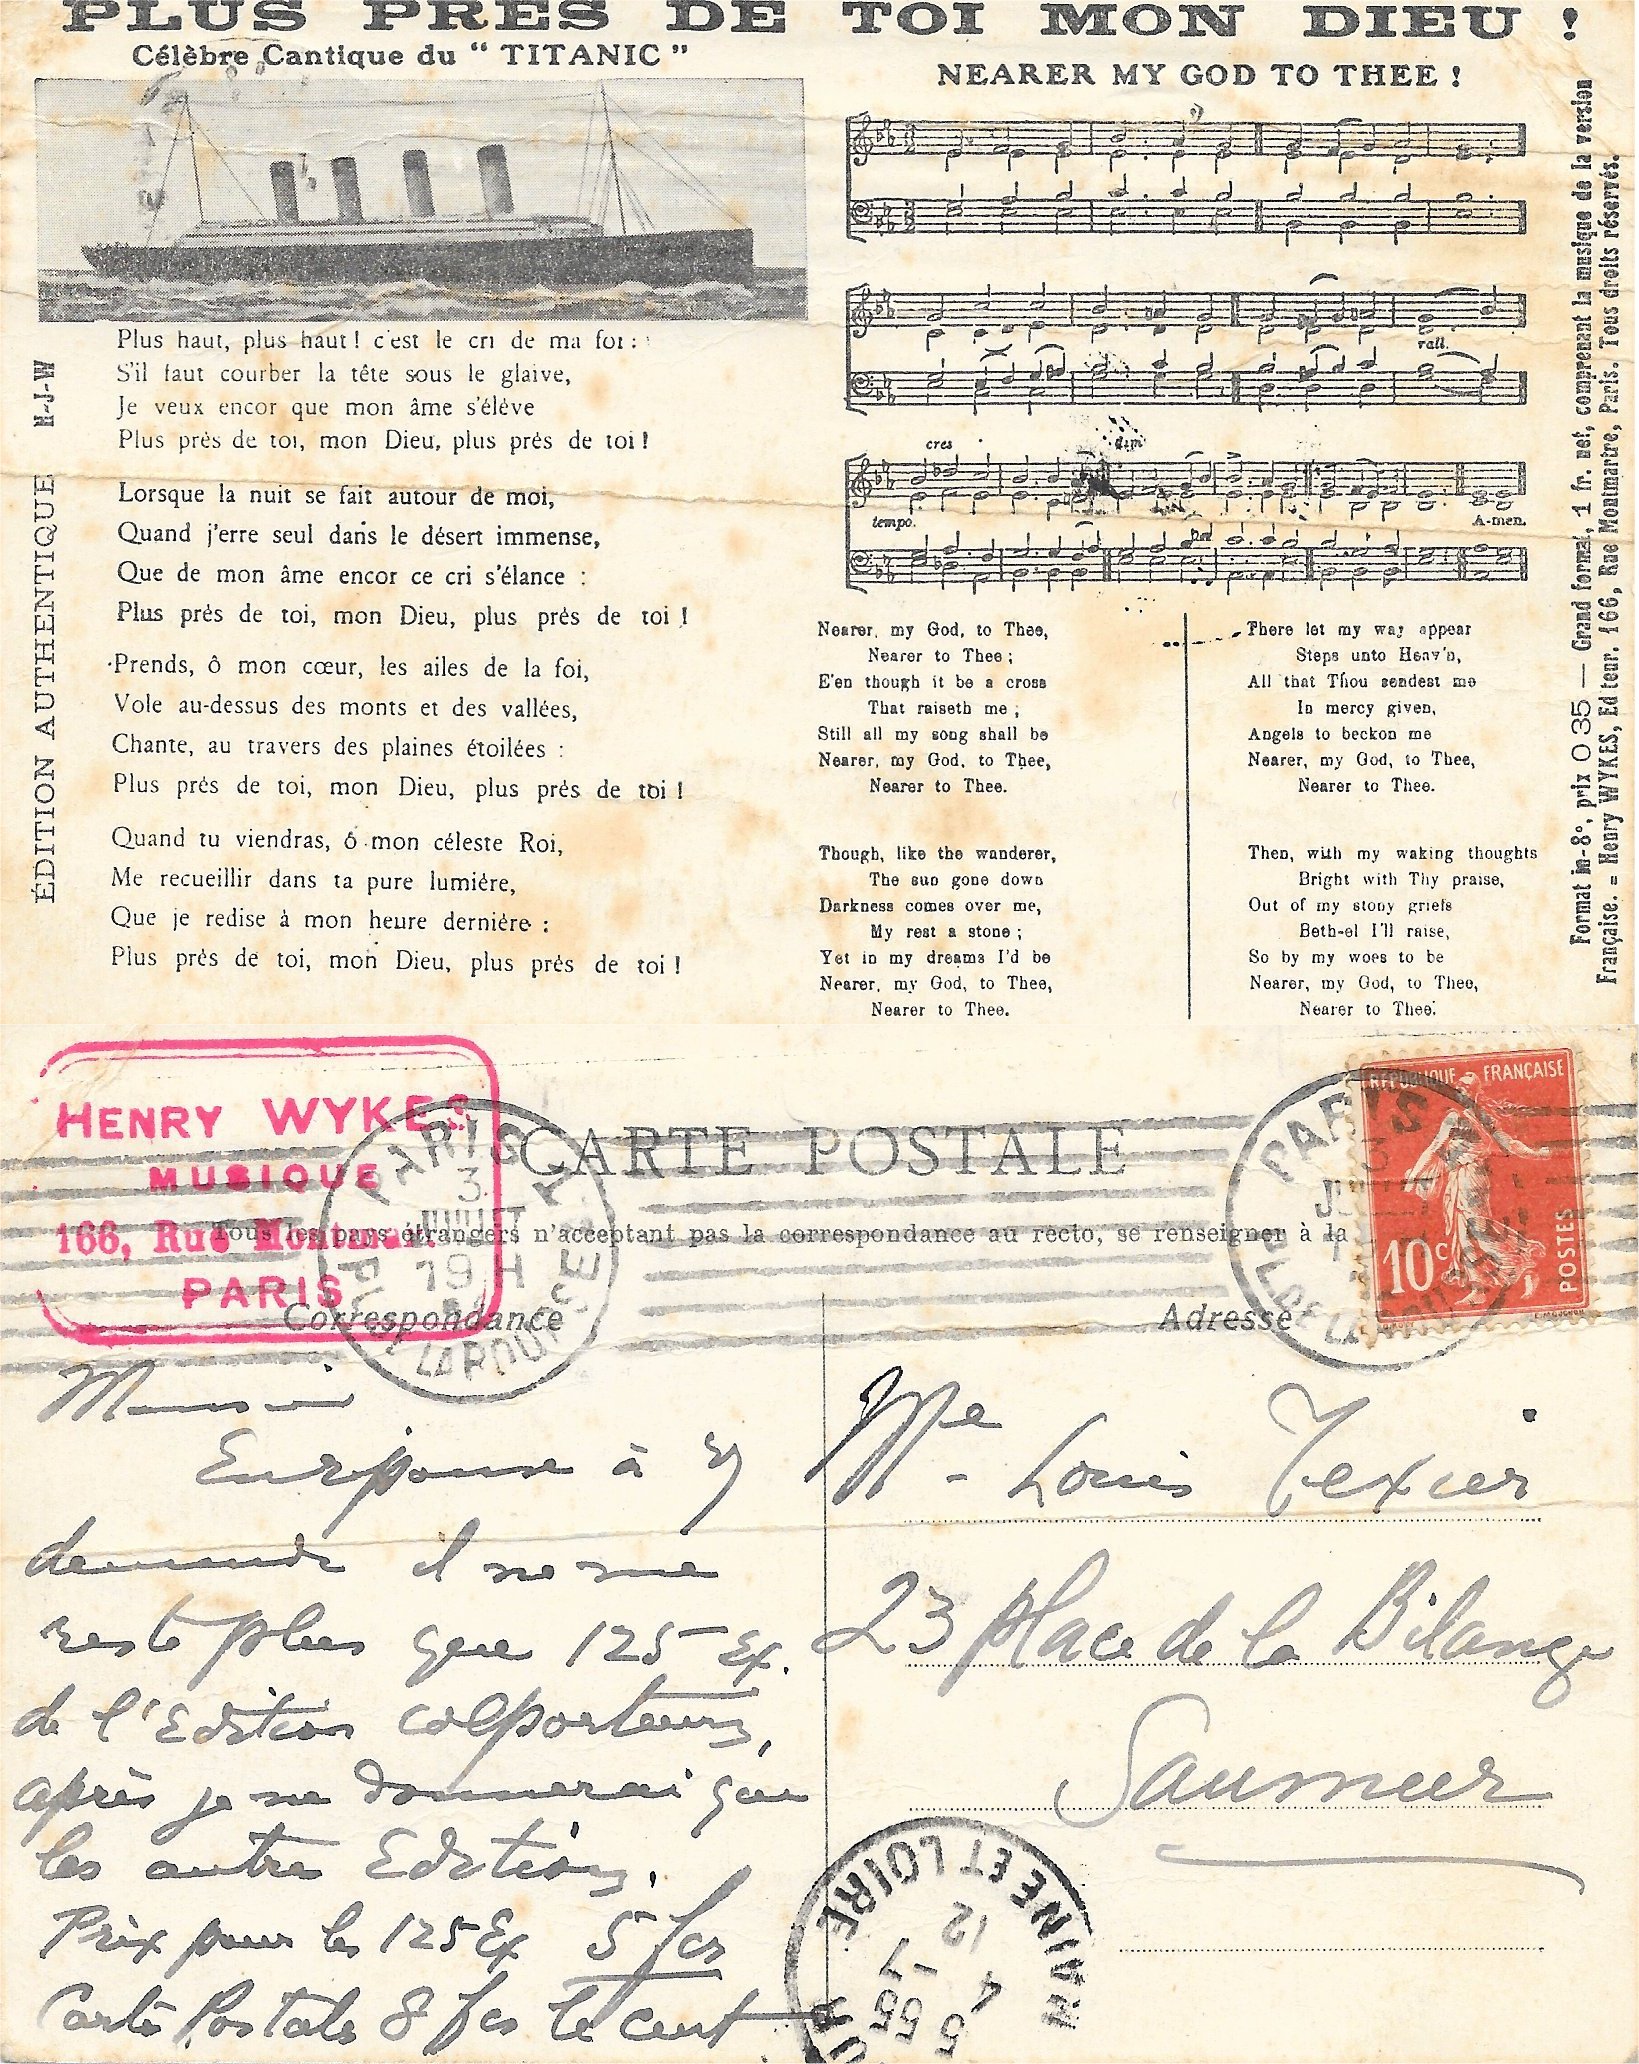 PLUS PRÈS DE TOI MON DIEU !
Célèbre Cantique du “ TITANIC ”
NEARER MY GOD TO THEE !
Plus haut, plus haut ! c'est le cri de ma foi :
S'il faut courber la tête sous le glaive,
Je veux encor que mon âme s'élève
Plus près de toi, mon Dieu, plus près de toi !
Lorsque la nuit se fait autour de moi,
Quand j'erre seul dans le désert immense,
Que de mon âme encor ce cri s'élance :
Plus près de toi, mon Dieu, plus près de toi !
Prends, ô mon cœur, les ailes de la foi,
Vole au-dessus des monts et des vallées,
Chante, au travers des plaines étoilées :
Plus près de toi, mon Dieu, plus près de toi !
Quand tu viendras, ô mon céleste Roi,
Me recueillir dans ta pure lumière,
Que je redise à mon heure dernière :
Plus près de toi, mon Dieu, plus près de toi !
ÉDITION AUTHENTIQUE H-J-W
rall.
cres
dim
tempo.
A-men.
Nearer, my God, to Thee,
Nearer to Thee ;
E'en though it be a cross
That raiseth me ;
Still all my song shall be
Nearer, my God, to Thee,
Nearer to Thee.
Though, like the wanderer,
The sun gone down
Darkness comes over me,
My rest a stone ;
Yet in my dreams I'd be
Nearer, my God, to Thee,
Nearer to Thee.
There let my way appear
Steps unto Heav'n,
All that Thou sendest me
In mercy given,
Angels to beckon me
Nearer, my God, to Thee,
Nearer to Thee.
Then, with my waking thoughts
Bright with Thy praise,
Out of my stony griefs
Beth-el I'll raise,
So by my woes to be
Nearer, my God, to Thee,
Nearer to Thee.
Format in-8º, prix 0 35 — Grand format, 1 fr. net, comprenant la musique de la version
Française. = Henry WYKES, Editeur. 166, Rue Montmartre, Paris. Tous droits réservés.
HENRY WYKES
MUSIQUE
166, Rue Montmart
PARIS
PARIS
3
JUILLET
19 H
CARTE POSTALE
Tous les pays étrangers n'acceptant pas la correspondance au recto, se renseigner à la
Correspondance
Adresse
PARIS
RÉPUBLIQUE FRANÇAISE
10c
POSTES
Monsieur
En réponse à v/
demande il ne me
reste plus que 125 Ex.
de l'Edition colporteurs,
après je ne donnerai que
les autres Editions.
Prix pour les 125 Ex 5 fcs
Carte Postale 8 fcs le cent
Mr Louis Texier
23 place de la Bilange
Saumur
MAINE ET LOIRE
5 55
4 - 7
12